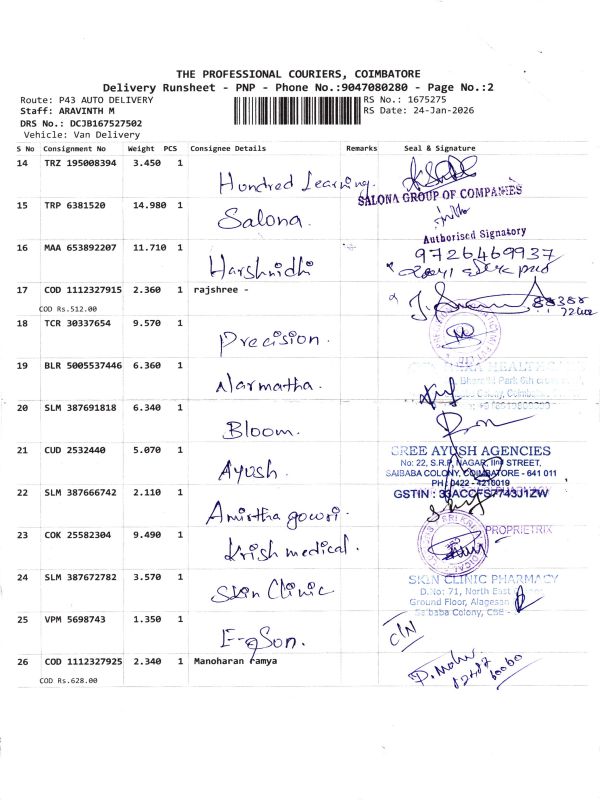 THE PROFESSIONAL COURIERS, COIMBATORE
Delivery Runsheet - PNP - Phone No.:9047080280 - Page No.:2
Route: P43 AUTO DELIVERY
RS No.: 1675275
Staff: ARAVINTH M
RS Date: 24-Jan-2026
DRS No.: DCJB167527502
Vehicle: Van Delivery
S No Consignment No Weight PCS Consignee Details Remarks Seal & Signature
14 TRZ 195008394 3.450 1
Hundred Learning.
SALONA GROUP OF COMPANIES
15 TRP 6381520 14.980 1
Salona.
Authorised Signatory
16 MAA 653892207 11.710 1
9726469937
Harshnidhi
17 COD 1112327915 2.360 1 rajshree -
COD Rs.512.00
18 TCR 30337654 9.570 1
Precision.
19 BLR 5005537446 6.360 1
Narmatha.
20 SLM 387691818 6.340 1
Bloom.
21 CUD 2532440 5.070 1
SREE AYUSH AGENCIES
No: 22, S.R.P. NAGAR, IInd STREET,
Ayush.
SAIBABA COLONY, COIMBATORE - 641 011
PH: 0422 - 4218019
22 SLM 387666742 2.110 1
GSTIN : 33ACCFS7743J1ZW
Amirtha gowri.
23 COK 25582304 9.490 1
PROPRIETRIX
Krish medical.
24 SLM 387672782 3.570 1
SKIN CLINIC PHARMACY
D.No: 71, North East
Skin Clinic
Ground Floor, Alagesan
Saibaba Colony, CBE -
25 VPM 5698743 1.350 1
C/N
E-gSon.
26 COD 1112327925 2.340 1 Manoharan ramya
COD Rs.628.00